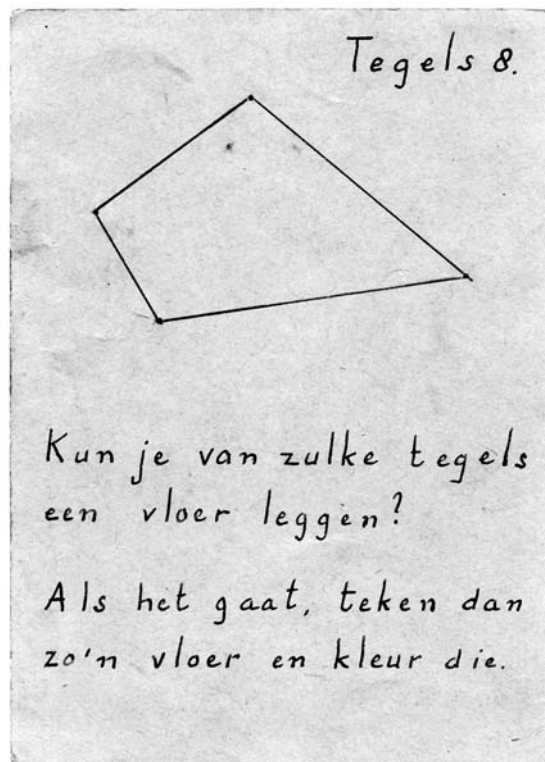 Tegels 8.
Kun je van zulke tegels
een vloer leggen?
Als het gaat, teken dan
zo'n vloer en kleur die.